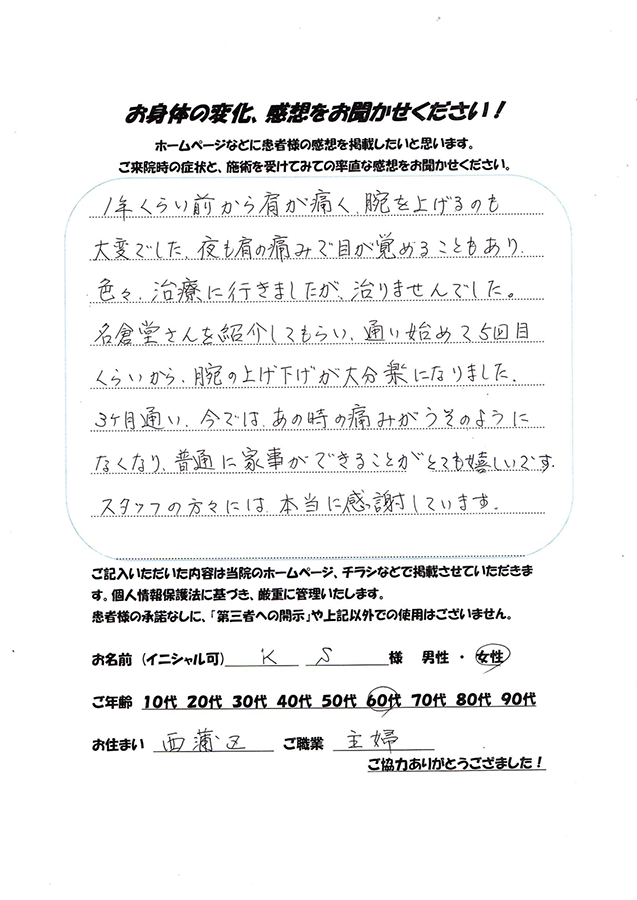 お身体の変化、感想をお聞かせください！
ホームページなどに患者様の感想を掲載したいと思います。
ご来院時の症状と、施術を受けてみての率直な感想をお聞かせください。
1年くらい前から肩が痛く、腕を上げるのも
大変でした、夜も肩の痛みで目が覚めることもあり、
色々、治療に行きましたが、治りませんでした。
名倉堂さんを紹介してもらい、通い始めて5回目
くらいから、腕の上げ下げが大分楽になりました、
3ヶ月通い、今では、あの時の痛みがうそのように
なくなり、普通に家事ができることがとても嬉しいです。
スタッフの方々には、本当に感謝しています。
ご記入いただいた内容は当院のホームページ、チラシなどで掲載させていただきま
す。個人情報保護法に基づき、厳重に管理いたします。
患者様の承諾なしに、「第三者への開示」や上記以外での使用はございません。
お名前（イニシャル可） K S 様 男性 ・ 女性
ご年齢 10代 20代 30代 40代 50代 60代 70代 80代 90代
お住まい 西蒲区 ご職業 主婦
ご協力ありがとうござました！